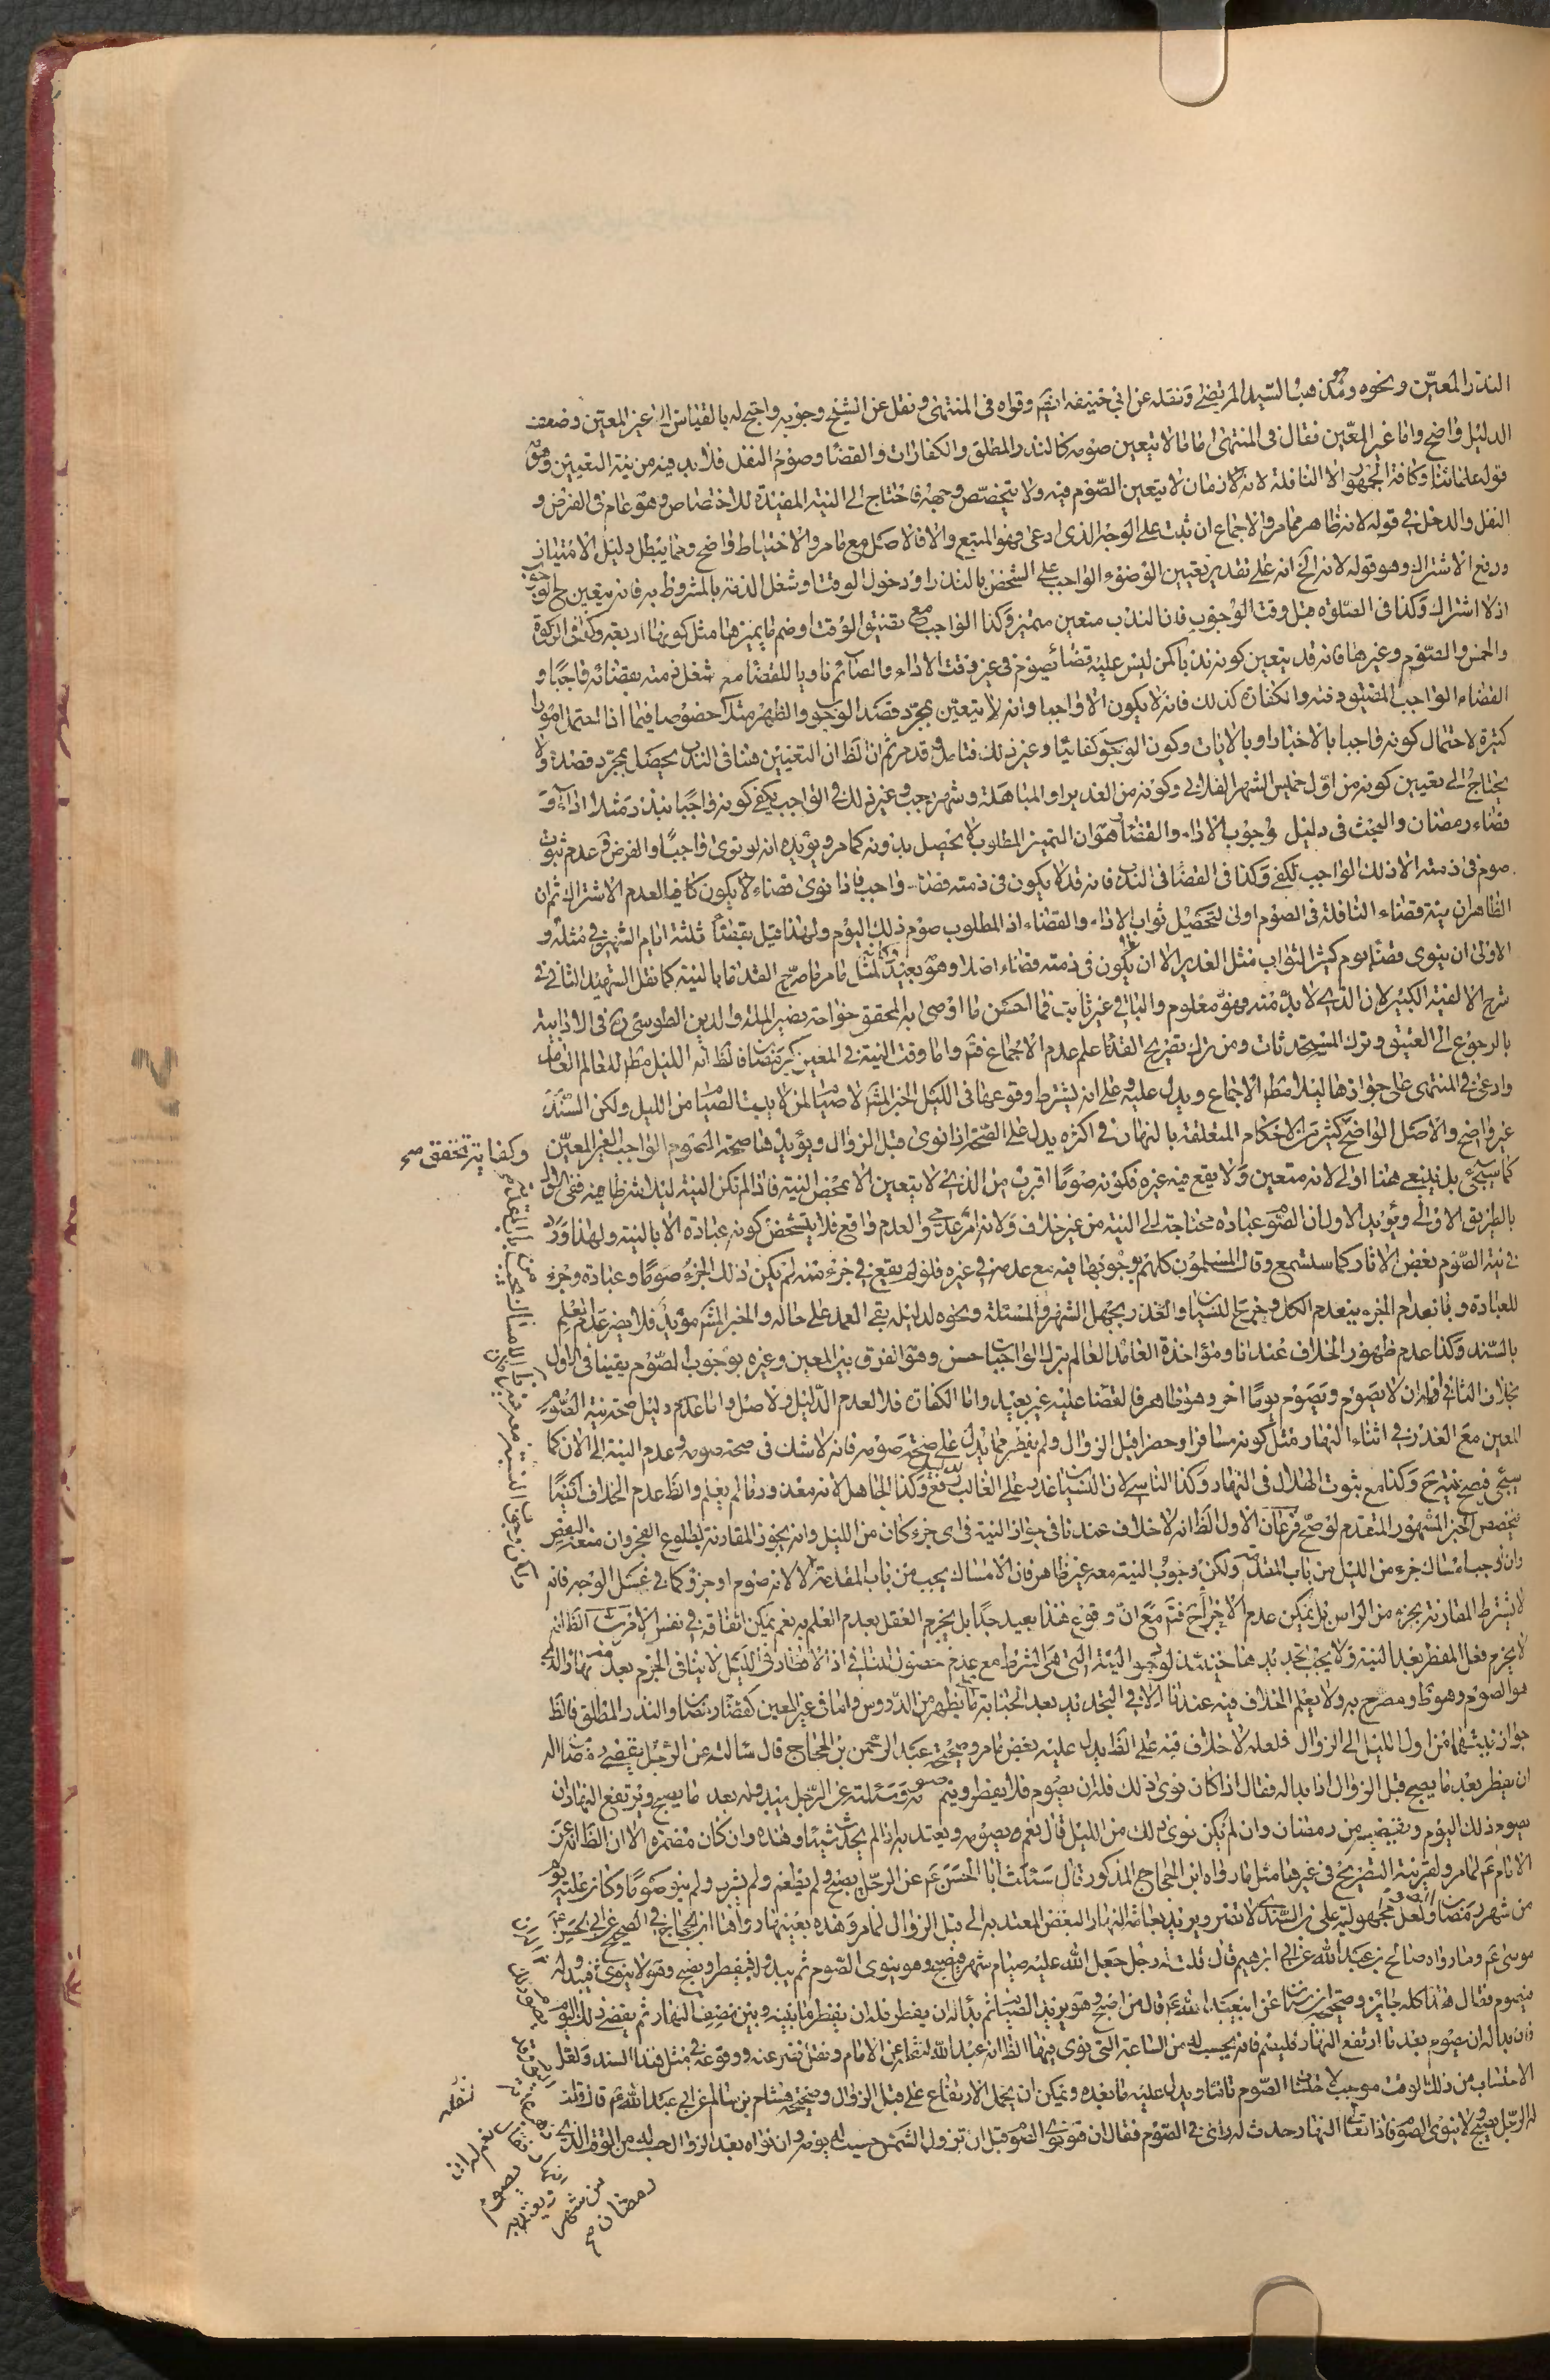 النذر المعيّن ونحوه وهو مذهب السيد المرتضى ونقله عن ابي حنيفه ايضم وقواه فى المنتهى ونقل عن الشيخ وجوبه واحتج له بالقياس الى غير المعين وضعف
الدليل واضح واما غير المعيّن فقال فى المنتهى اما ما لا يتعين صومه كالنذر المطلق والكفارات والقضا وصوم النفل فلابد فيه من نية التعيين وهو
قول علمائنا وكافة الجمهور الا النافلة لانه لازمان لا يتعين الصوم فيه ولا يتخصّص وجهه فاحتاج الى النية المفيدة للاختصاص وهو عام فى الفرض و
النفل والدخل فى قوله لانه ظاهر مما مر والاجماع ان ثبت على الوجه الذى ادعى فهو المتبع والا فالاصل مع ما مر والاحتياط واضح ومما يبطل دليل الامتياز
ورفع الاشتراك وهو قوله لانه الخ انه على تقدير تعيين الوضوء الواجب على الشخص بالنذر او دخول الوقت او شغل الذمة بالمشروط به فانه يتعين ح الوجوب
اذ لا اشتراك وكذا فى الصلوة قبل وقت الوجوب فان الندب متعين متميز وكذا الواجب مع تضيق الوقت او ضم ما يميزها مثل كونها اربعة وكذا فى الزكوة
والخمس والصوم وغيرها فانه قد يتعين كونه ندبا كمن ليس عليه قضا يصوم فى غير وقت الاداء والصائم ناويا للقضا مع شغل ذمته بقضائه واجبا و
القضاء الواجب المضيق وقته والكفارة كذلك فانه لا يكون الا واجبا وانه لا يتعين بمجرد قصد الوجوب والظهر مثلا خصوصا فيما اذا احتمل امورا
كثيرة لاحتمال كونه واجبا بالاخبار او بالايات وكون الوجوب كفائيا وغير ذلك فتامل وقد مر ثم ان الظ ان التعيين هنا فى الندب يحصل بمجرد قصده ولا
يحتاج الى تعيين كونه من اول خميس الشهر الفلانى وكونه من الغدير او المباهلة وشهر رجب وغير ذلك فى الواجب يكفى كونه واجبا بنذر مثلا اداء و
قضاء رمضان والبحث فى دليل وجوب الاداء والقضا هو ان التميز المطلوب لا يحصل بدونه كما مر ويؤيده انه لو نوى واجبا والفرض عدم ثبوت
صوم فى ذمته الا ذلك الواجب لكفى وكذا فى القضا فى الندب فانه قد لا يكون فى ذمته قضاء واجب فاذا نوى قضاء لا يكون كافيا لعدم الاشتراك ثم ان
الظاهر ان نية قضاء النافلة فى الصوم اولى لتحصيل ثواب الاداء والقضاء اذ المطلوب صوم ذلك اليوم ولهذا قيل بقضا ثلثة ايام الشهر فى مثله و
الاولى ان ينوى قضاء يوم كثير الثواب مثل الغدير الا ان يكون فى ذمته قضاء اصلا وهو بعيد لمثل ما مر ما صرح القدما بالنية كما نقل الشهيد الثانى فى
شرح الالفية الكبير لان الذى لابد منه وهو معلوم والباقى غير ثابت فما احسن ما اوصى به المحقق خواجه نصير الملة والدين الطوسى ره فى الادابية
بالرجوع الى العتيق وترك المستحدثات ومن ترك تصريح القدما علم عدم الاجماع فتم واما وقت النية فى المعين كرمضان فالظ انه الليل مطم للعالم العامد
وادعى فى المنتهى على جوازها ليلا مطم الاجماع ويدل عليه وعلى انه يشترط وقوعها فى الليل الخبر المشهور لا صيام لمن لا يبيت الصيام من الليل ولكن السند
غير واضح والاصل الواضح كثير من الاحكام المتعلقة بالنهار فى اكثره يدل على الصحة اذا نوى قبل الزوال ويؤيدها صحة الصوم الواجب الغير المعيّن
وكفاية تحقق صح
كما سيجئ بل ينبغى هنا اولى لانه متعين ولا يقع فيه غيره فكونه صوما اقرب من الذى لا يتعين الا بمحض النية فاذا لم تكن النية ليلا شرطا فيه ففى
بالطريق الاولى ويؤيد الاول ان الصوم عبادة محتاجة الى النية من غير خلاف ولانه امر عدمى والعدم واقع فلا يتشخص كونه عبادة الا بالنية ولهذا ورد
فى نية الصوم بعض الاثار كما ستسمع وقال المسلمون كلهم بوجوبها فيه مع عدمه فى غيره فلو لم يقع فى جزء منه لم يكن ذلك الجزء صوما وعبادة وجزء
للعبادة وبانعدام الجزء ينعدم الكل وخرج النسيان والعذر بجهل الشهر والمسئلة ونحوه لدليله بقى العمد على حاله والخبر المشهور مؤيد فلا يضر عدم العلم
بالسند وكذا عدم ظهور الخلاف عندنا ومؤاخذة العامد العالم بترك الواجبات حسن وهو الفرق بين المعين وغيره بوجوب الصوم يقينا فى الاول
بخلاف الثانى فله ان لا يصوم ويصوم يوما اخر وهو ظاهر فالقضا عليه غير بعيد واما الكفارة فلا لعدم الدليل والاصل واما عدم دليل صحة نية الصوم
المعين مع العذر فى اثناء النهار مثل كونه مسافرا وحضر قبل الزوال ولم يفطر مما يدل على صحة صومه فانه لاشك فى صحة صومه وعدم النية الى الان كما
سيجئ فصح نية ح وكذا مع ثبوت الهلال فى النهار وكذا الناسى لان النسيان عذر على الغالب وكذا الجاهل لانه معذور ما لم يعلم والظ عدم الخلاف
مخصص الخبر المشهور المتقدم لو صح فرعان الاول الظ انه لا خلاف عندنا فى جواز النية فى اى جزء كان من الليل وانه يجوز المقارنة لطلوع الفجر وان منعه البعض
وان وجب امساك جزء من الليل من باب المقدمة ولكن وجوب النية معه غير ظاهر فان الامساك يجب من باب المقدمة لا لانه صوم او جزؤه كما فى غسل الوجه فانه
لا يشترط المقارنة بجزء من الراس بل يمكن عدم الاجزاء ح فتم مع ان وقوع هذا بعيد جدا بل يجزم العقل بعدم العلم به نعم يمكن اتفاقه فى نفس الامر ب الظ انه
لا يحرم فعل المفطر بعد النية ولا يجب تجديدها حينئذ لوجود النية التى هى الشرط مع عدم حصول المنافى اذ الافطار فى الليل لا ينافى الجزم بعدمه نهارا الذى
هو الصوم وهو ظ ومصرح به ولا يعلم الخلاف فيه عندنا الا فى التجديد بعد الجنابة كما يظهر من الدروس واما فى غير المعين كقضا رمضان والنذر المطلق فالظ
جواز نيتهما من اول الليل الى الزوال فلعله لا خلاف فيه على الظ يدل عليه بعض ما مر وصحيحة عبد الرحمن بن الحجاج قال سالته عن الرجل يقضى رمضان اله
ان يفطر بعد ما يصبح قبل الزوال اذا بدا له فقال اذا كان نوى ذلك من الليل وكان من قضاء رمضان فلا يفطر ويتم صومه وسئلته عن الرجل يبدو له بعد ما يصبح ويرتفع النهار ان
يصوم ذلك اليوم ويقضيه من رمضان وان لم يكن نوى ذلك من الليل قال نعم ويصومه ويعتد به اذا لم يحدث شيئا وهذه وان كان مضمرة الا ان الظ انه عن
الامام عم لما مر ولقرينة التصريح فى غيرها مثل ما رواه ابن الحجاج المذكور قال سئلت ابا الحسن عم عن الرجل يصبح ولم يطعم ولم يشرب ولم ينو صوما وكان عليه يوم
من شهر رمضان
موسى عم وما رواه صالح بن عبد الله عن ابى ابرهيم قال قلت له رجل جعل الله عليه صيام شهر فيصبح وهو ينوى الصوم ثم يبدو له فيفطر ويصبح وهو لا ينوى فيبدو له
فيصوم فقال هذا كله جائز وصحيحة ابن سنان عن ابى عبد الله عم قال من اصبح وهو يريد الصيام ثم بدا له ان يفطر فله ان يفطر ما بينه وبين نصف النهار ثم يقضى ذلك اليوم
فان بدا له ان يصوم بعد ما ارتفع النهار فليصم فانه يحسب له من الساعة التى نوى فيها
الاحتساب من ذلك الوقت موجب لاحتساب الصوم تاما ويدل عليه ما بعده ويمكن ان يحمل الارتفاع على قبل الزوال وصحيحة هشام بن سالم عن ابى عبد الله عم قال قلت
له الرجل يصبح ولا ينوى الصوم فاذا تعالى النهار حدث له راى فى الصوم فقال ان هو نوى الصوم قبل ان تزول الشمس حسب له يومه وان نواه بعد الزوال حسب له من الوقت الذى
نعم له ان
يصوم
ويعتد به
من شهر
رمضان